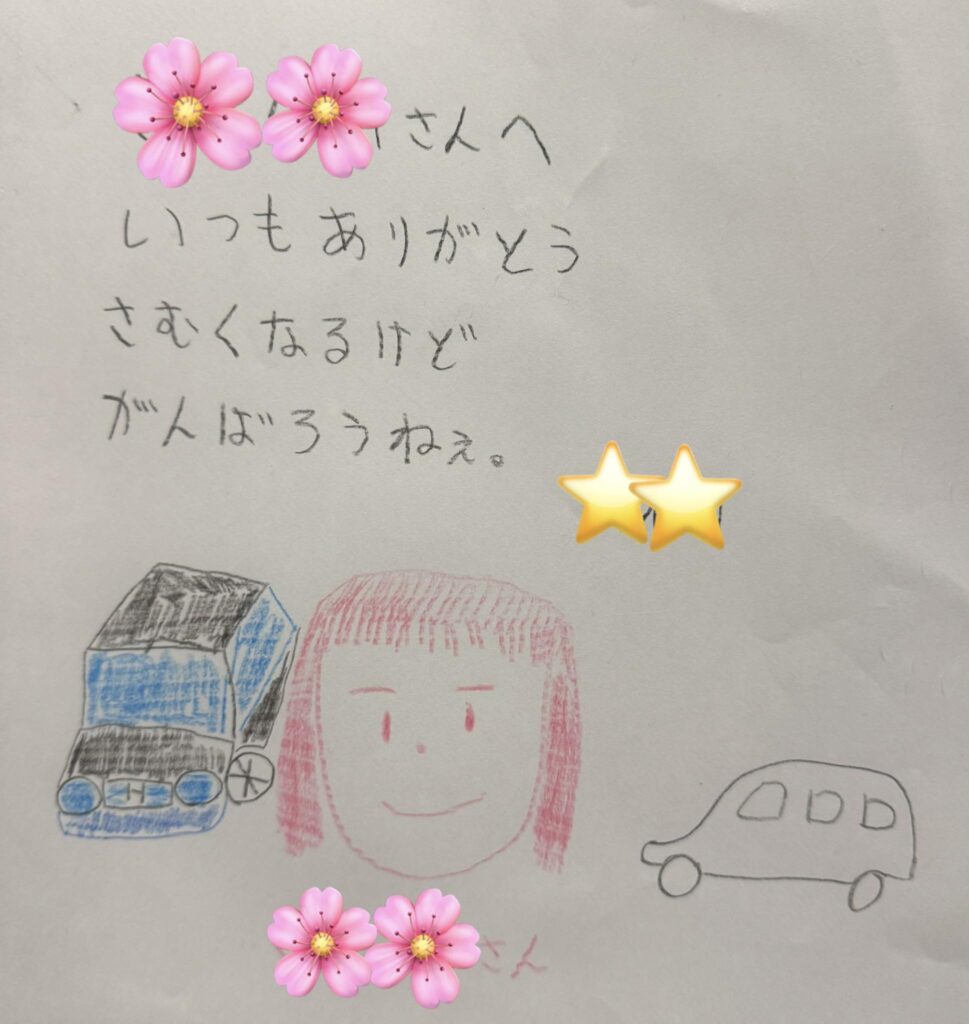 さんへ
いつもありがとう
さむくなるけど
がんばろうねぇ。
H
さん